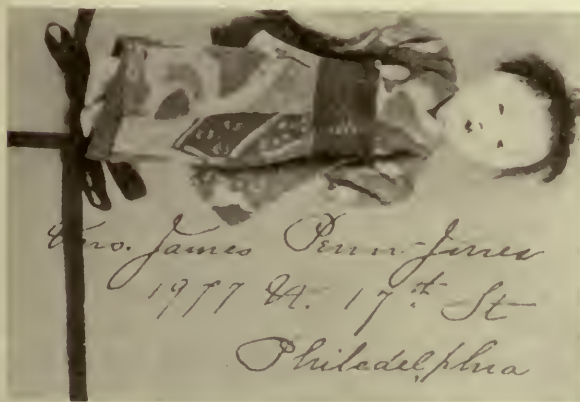 Mrs. James Penn-Jones
1977 N. 17th St
Philadelphia